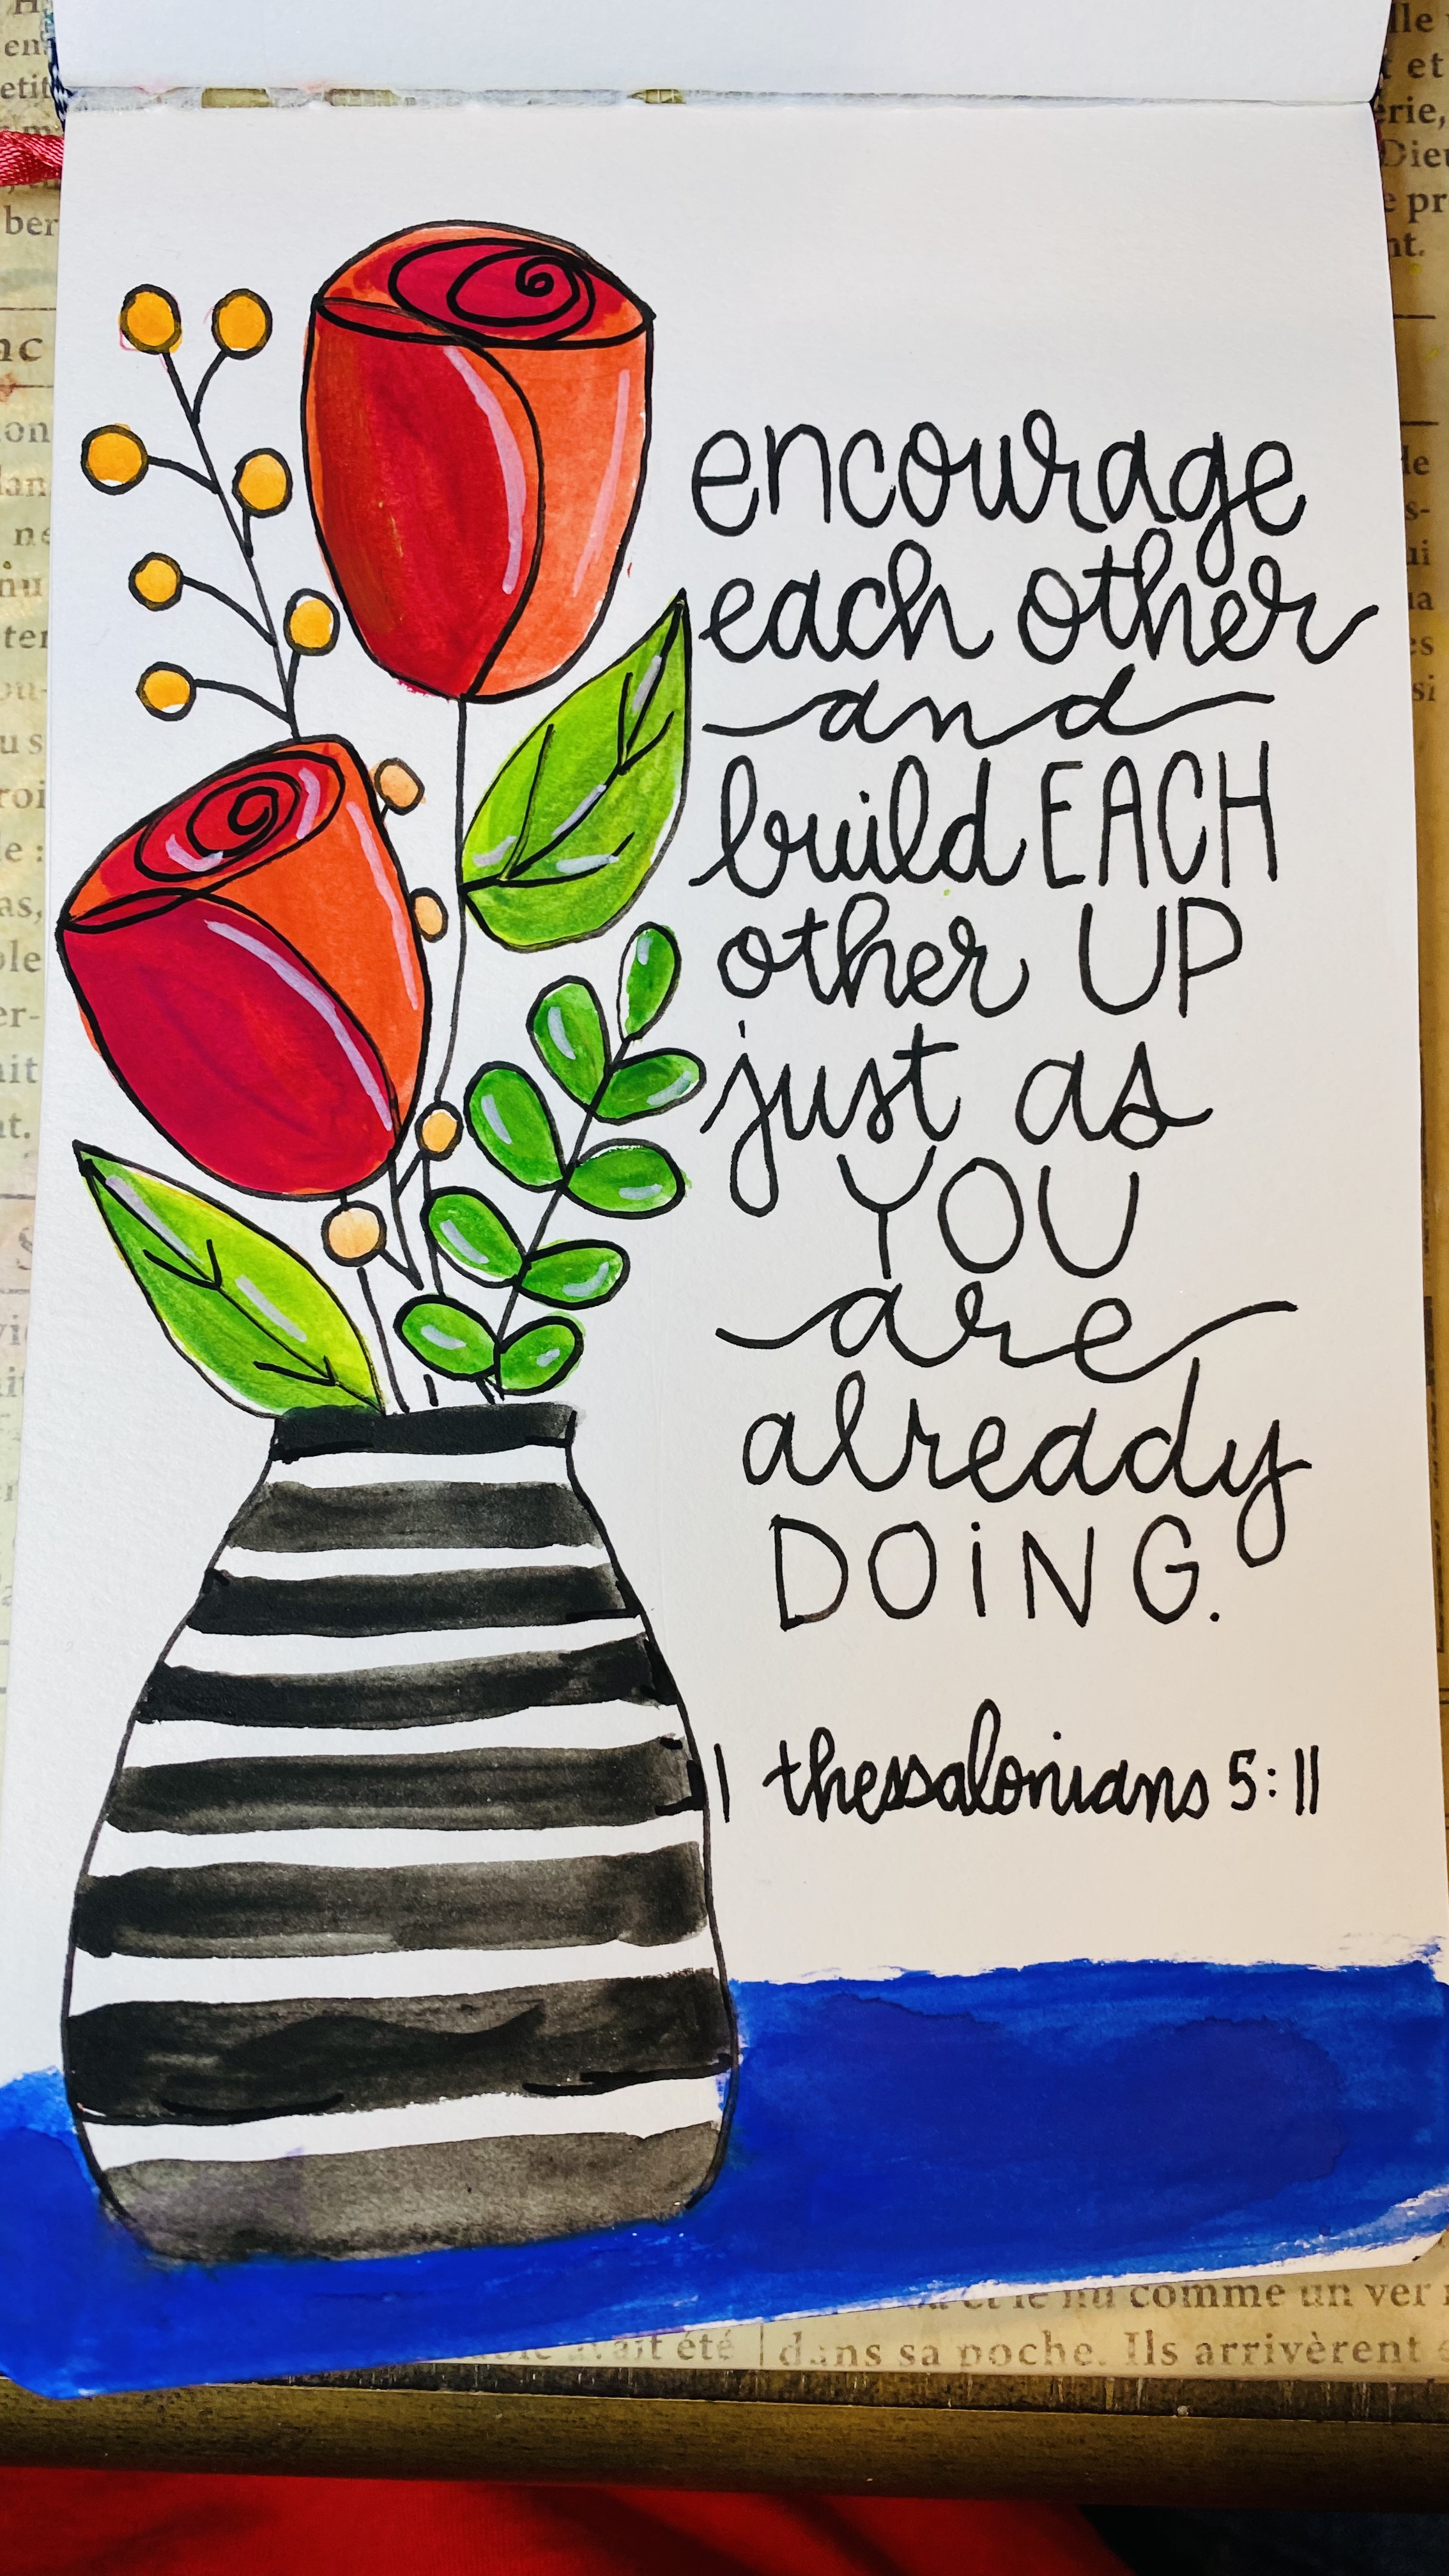 encourage
each other
and
build EACH
other UP
just as
YOU
are
already
DOiNG.
1 thessalonians 5:11
comme un ver
avait été
dans sa poche. Ils arrivèrent